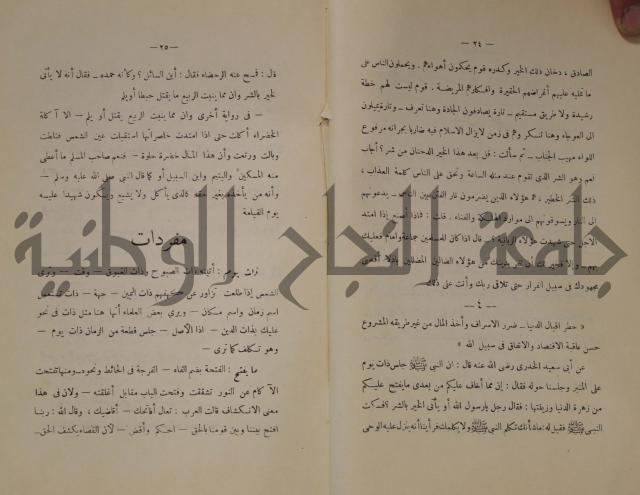 — ٢٤ —
الصادق ، دخان ذلك الخير وكدره قوم يحكمون أهواءهم . ويحملون الناس على
ما تمليه عليهم أغراضهم الحقيرة وأفكارهم المريضة . قوم ليست لهم خطة
رشيدة ولا طريق مستقيم — تارة يصادفون الجادة وهنا تعرف — وتارة يميلون
الى العوجاء وهنا تنكر وهم فى زمن لايزال الاسلام فيه ضاربا بجرانه مرفوع
اللواء مهيب الجناب — ثم سألت : قل بعد هذا الخير الدخان من شر ؟ أجاب
نعم وهو الشر الذى تقوم عند منه الساعة وتحق على الناس كلمة العذاب ،
ذلك الشر الخطير ، هؤلاء الذين يضرمون نار الفتن بين الناس — يدعونهم
الى النار ويسوقونهم الى موارد الهلكة والفناء . قلت : فماذا أصنع إذا امتد
الاجل حتى شهدت هؤلاء الزبانية ؟ قال اذا كان للمسلمين جماعة وامام فعليك
بهم — وإلا فخير لك أن تفر بدينك من هؤلاء الضالين المضللين باذلا أقصى
مجهودك فى سبيل الفرار حتى تلاقى ربك وأنت على ذلك
— ٤ —
« خطر اقبال الدنيا — ضرر الاسراف وأخذ المال من غير طريقه المشروع
حسن عاقبة الاقتصاد والانفاق فى سبيل الله »
عن أبى سعيد الخدرى رضى الله عنه قال : ان النبى ﷺ جلس ذات يوم
على المنبر وجلسنا حوله فقال : إن مما أخاف عليكم من بعدى مايفتح عليكم
من زهرة الدنيا وزينتها : فقال رجل يارسول الله أو يأتى الخير بالشر ؟ فسكت
النبى ﷺ فقيل له : ماشأنك تكلم النبى ﷺ ولا يكلمك فرأينا أنه ينزل عليه الوحى
— ٢٥ —
قال : فمسح عنه الرحضاء فقال : أين السائل ؟ وكأنه حمده — فقال أنه لا يأتى
الخير بالشر وان مما ينبت الربيع ما يقتل حبطا أويلم
— فى رواية أخرى وان مما ينبت الربيع يقتل أو يلم — الا آكلة
الخضراء أكلت حتى اذا امتدت خاصرتاها استقبلت عين الشمس فثلطت
وبالت ورتعت وأن هذا المال خضرة حلوة — فنعم صاحب المسلم ما أعطى
منه المسكين واليتيم وابن السبيل أو كما قال النبى صلى الله عليه وسلم —
وأنه من يأخذه بغير حقه كالذى يأكل ولا يشبع ويكون شهيدا عليه
يوم القيامة
مفردات
ذات يوم : أتيته ذات الصبوح وذات الغبوق — وقت — وترى
الشمس إذا طلعت تزاور عن كهفهم ذات اليمين — جهة — ذات تستعمل
اسم زمان واسم مكان — ويرى بعض العلماء أنها هنا مثل ذات فى نحو
عليك بذات الدين — اذا الأصل — جلس قطعة من الزمان ذات يوم —
وهو تكلف كما ترى —
ما يفتح : الفتحة بضم الفاء — الفرجة فى الحائط ونحوه . ومنها تفتحت
الأكمام عن النور تشققت وفتحت الباب مقابل أغلقته — ولان فى هذا
معنى الانكشاف قالت العرب : تعال أفاتحك — أقاضيك ، وقال الله : ربنا
افتح بيننا وبين قومنا بالحق — احكم وأقض — لأن القضاء يكشف الحق
جامعة النجاح الوطنية